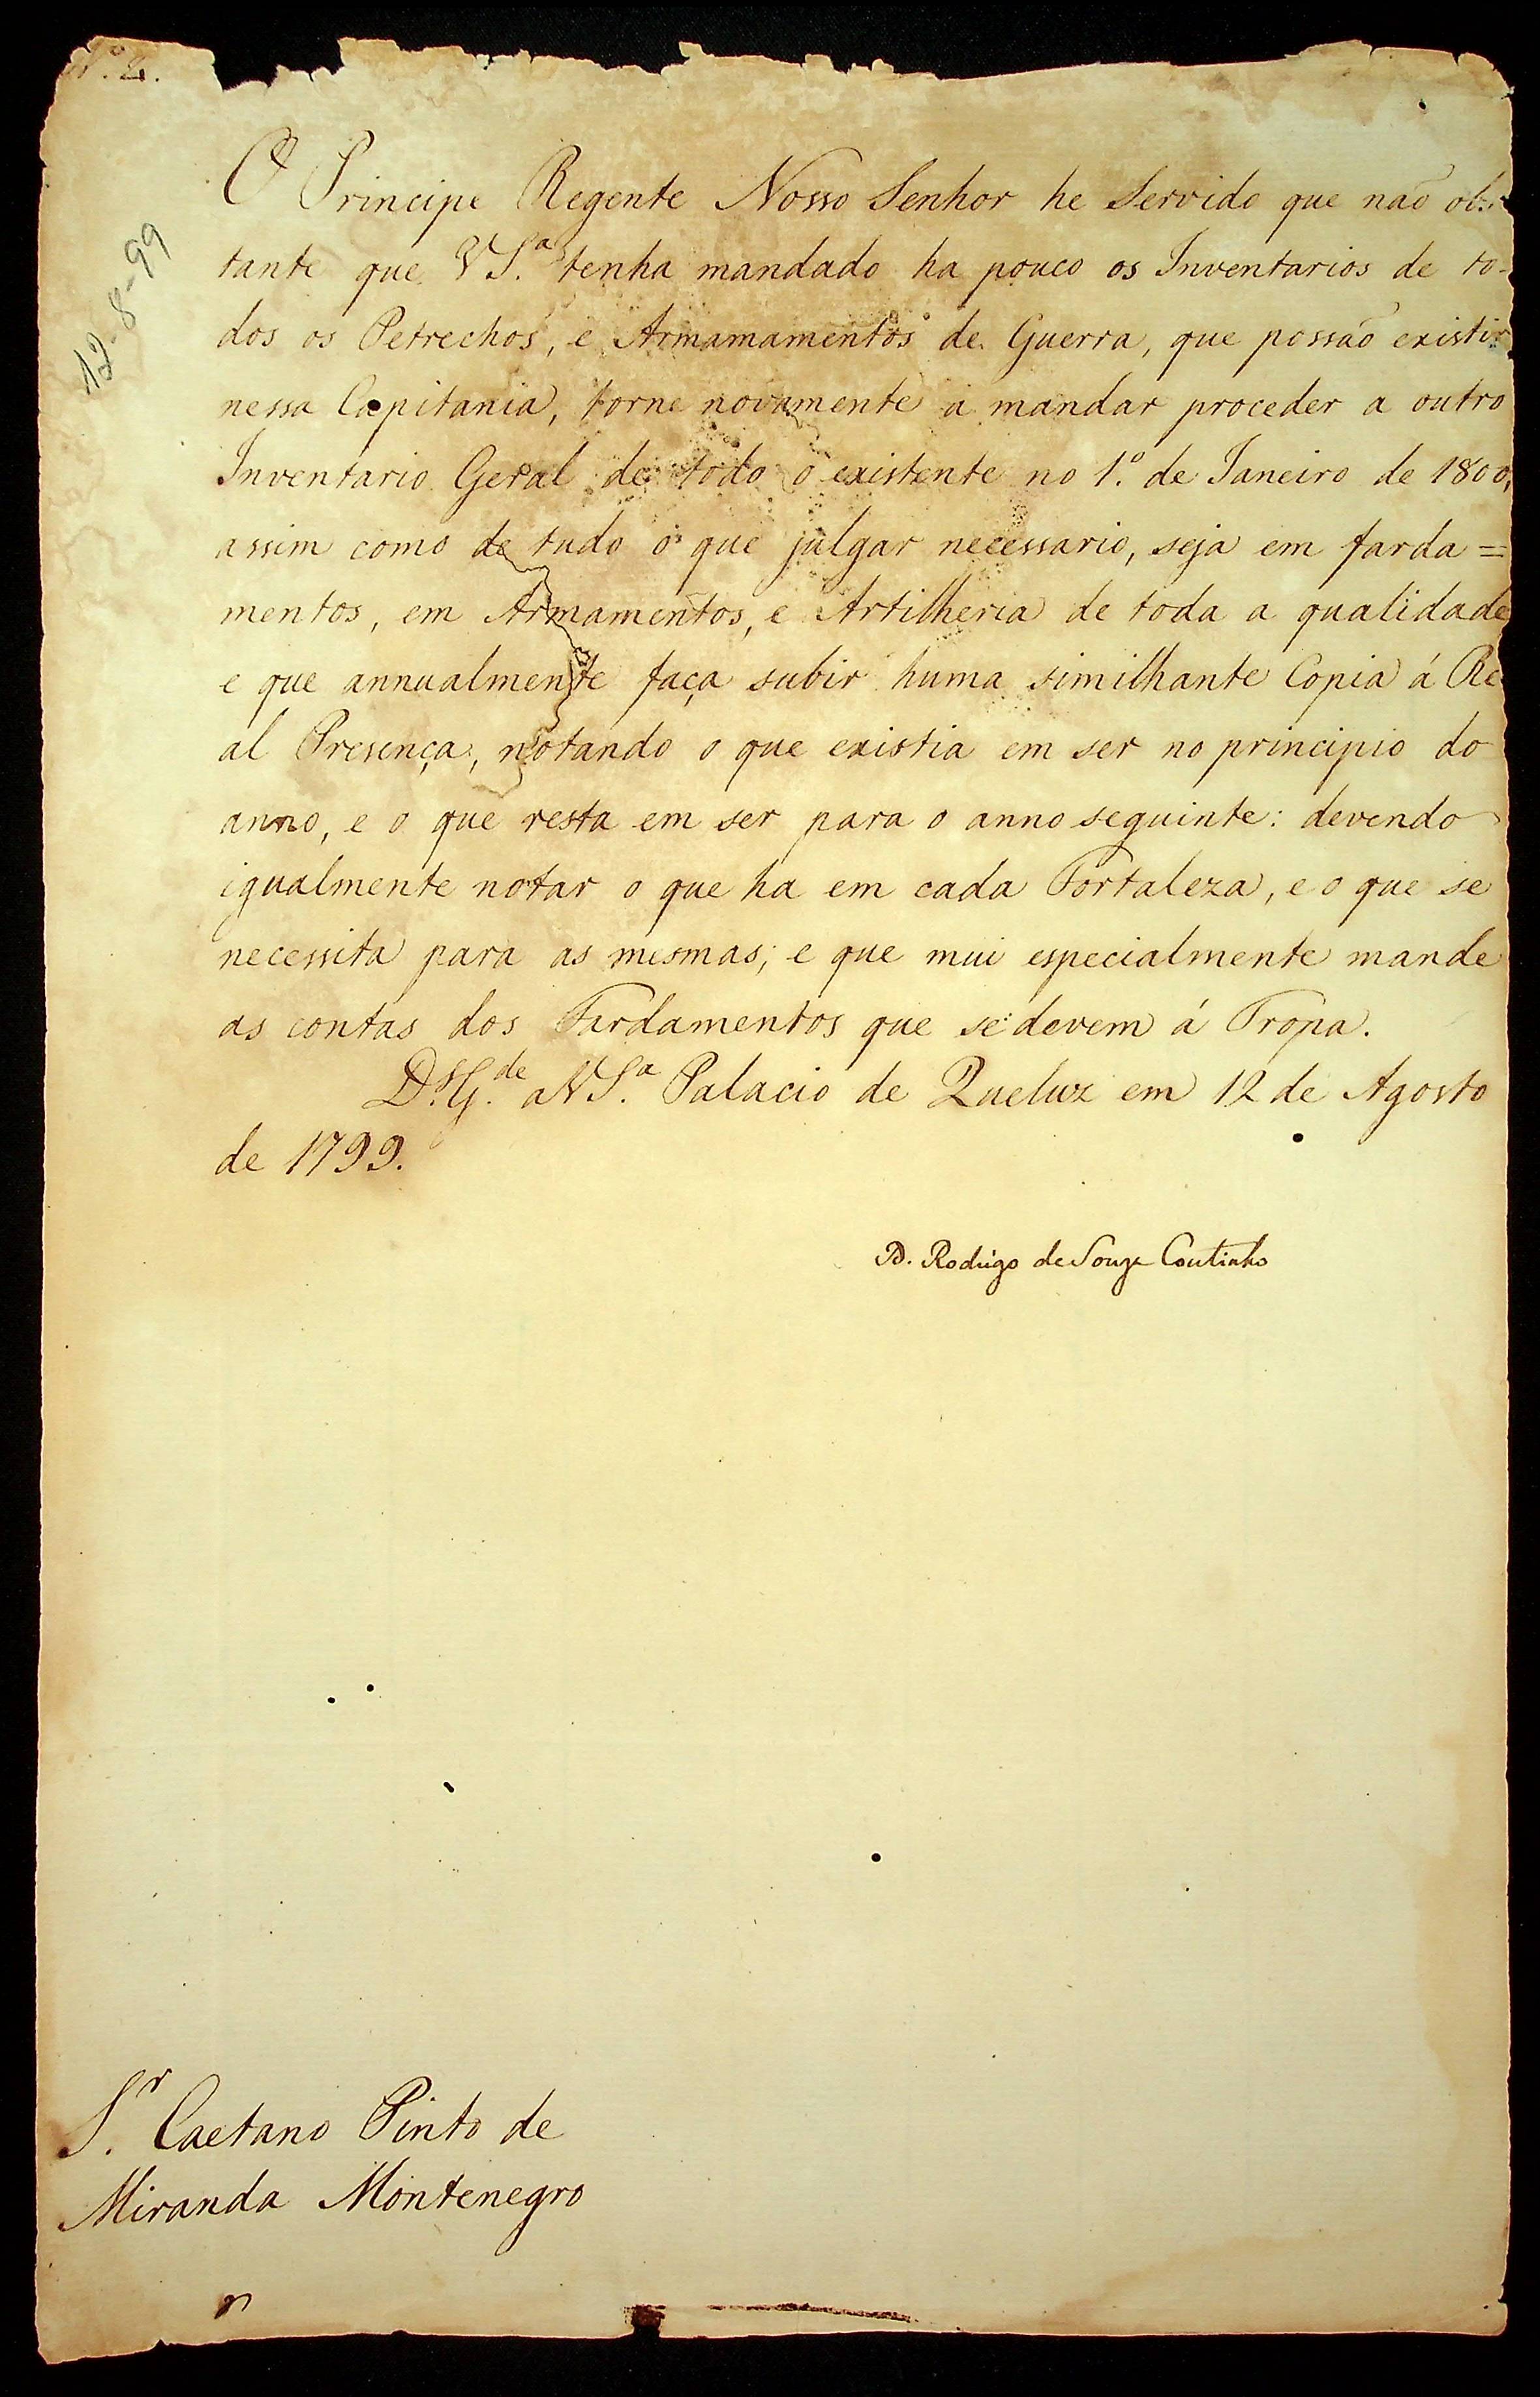 Nº 2.
12-8-99
O Principe Regente Nosso Senhor he Servido que naõ obs
tante que VS.ª tenha mandado ha pouco os Inventarios de to-
dos os Petrechos, e Armamamentos de Guerra, que possaõ existir
nessa Capitania, torne novamente a mandar proceder a outro
Inventario Geral de todo o existente no 1.º de Janeiro de 1800,
assim como de tudo o que julgar necessario, seja em farda=
mentos, em Armamentos, e Artilheria de toda a qualidade
e que annualmente faça subir huma similhante Copia á Re
al Presença, notando o que existia em ser no principio do
anno, e o que resta em ser para o anno seguinte: devendo
igualmente notar o que ha em cada Fortaleza, e o que se
necessita para as mesmas; e que mui especialmente mande
as contas dos Fardamentos que se devem á Tropa.
D.s G.de a VS.ª Palacio de Queluz em 12 de Agosto
de 1799.
D. Rodrigo de Souza Coutinho
S.r Caetano Pinto de
Miranda Montenegro